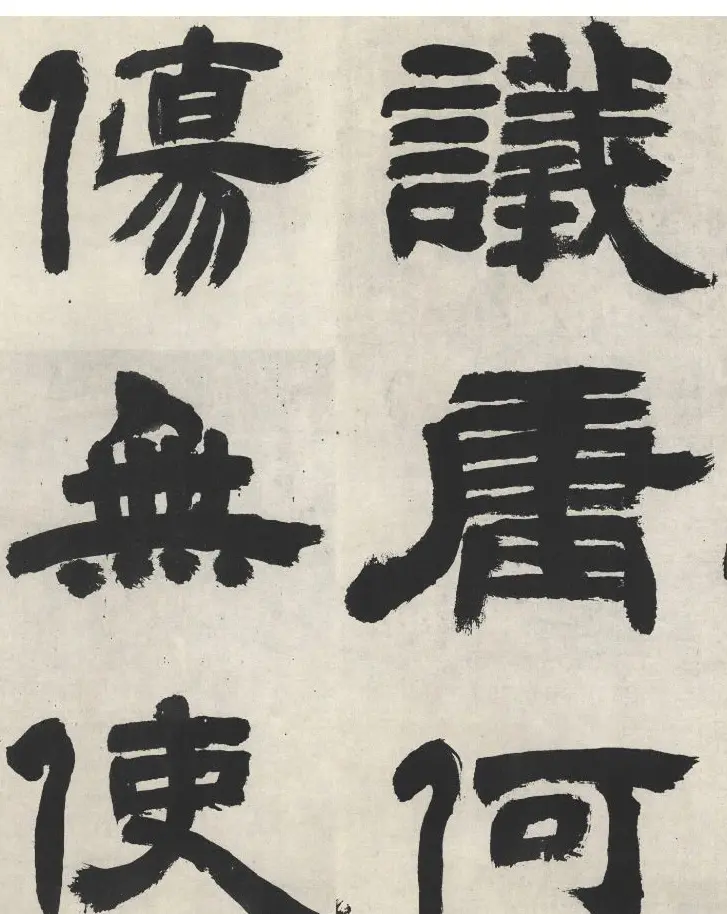 議庸何
傷無使